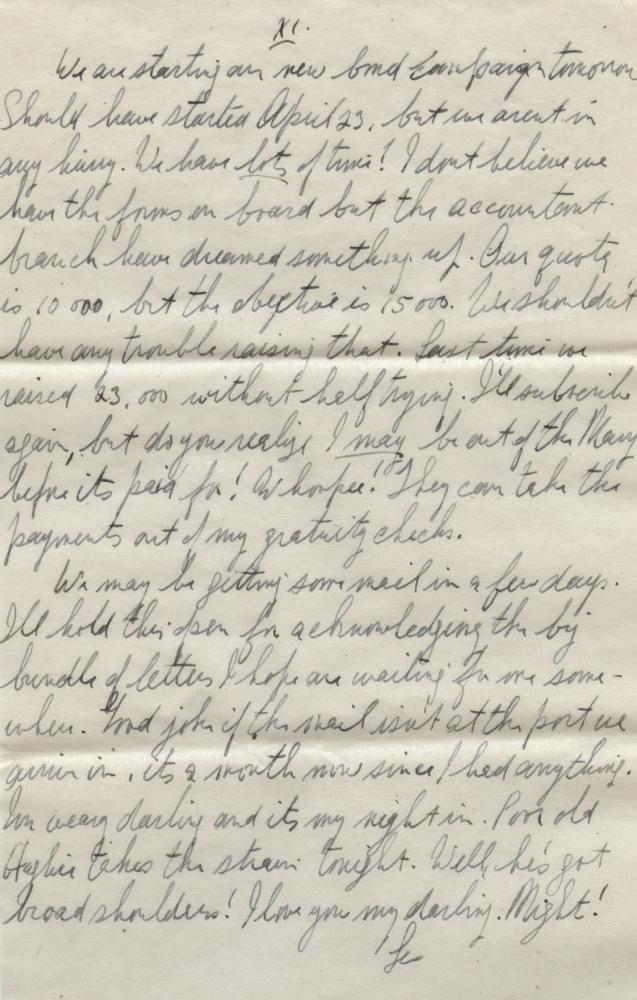 XI.
We are starting our new bond campaign tomorrow
Should have started April 23, but we arent in
any hurry. We have lots of time! I dont believe we
have the forms on board but the accountant
branch have dreamed something up. Our quota
is 10 000, but the objective is 15 000. We shouldn't
have any trouble raising that. Last time we
raised 23,000 without half trying. I'll subscribe
again, but do you realize I may be out of the Navy
before its paid for! Whoopee! They can take the
payments out of my gratuity checks.
We may be getting some mail in a few days.
I'll hold this open for acknowledging the big
bundle of letters I hope are waiting for me some-
where. Good joke if the mail isnt at the port we
arrive in, its a month now since I had anything.
Im weary darling and its my night in. Poor old
Hughie takes the strain tonight. Well, he's got
broad shoulders! I love you my darling. Night!